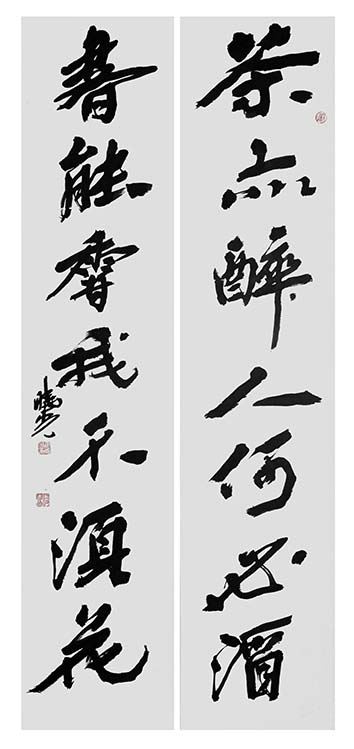 茶亦醉人何必酒
書能香我不須花